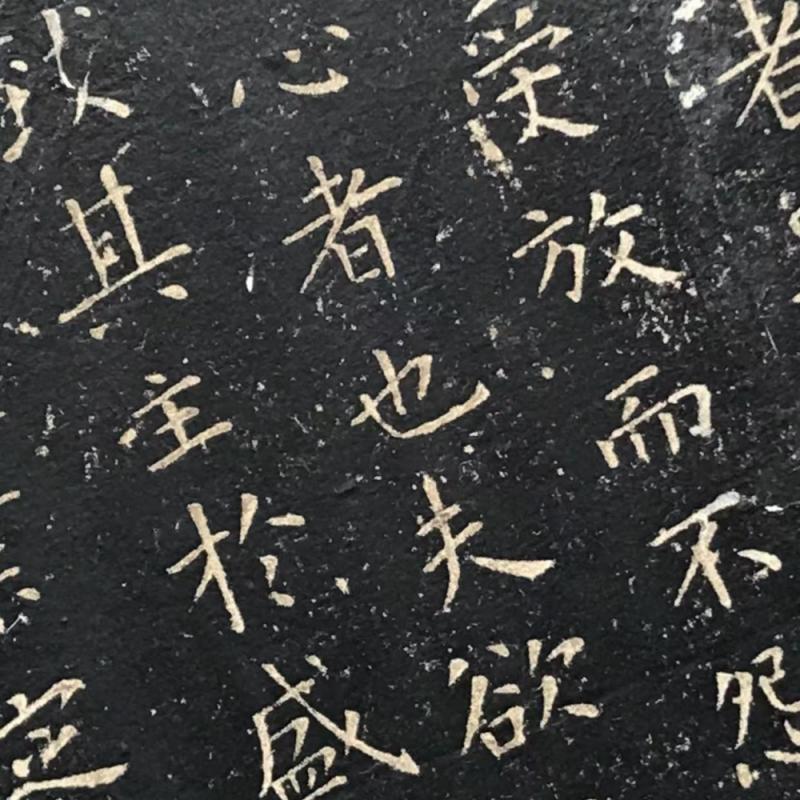 者
受放而不怨
心者也夫欲
其主於盛
定